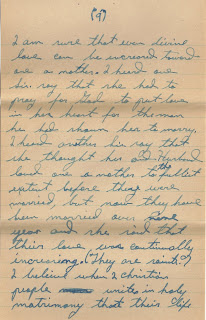 (9)
I am sure that even divine
love can be increased toward
one a mother. I heard one
Sis say that she had to
pray for God to put love
in her heart for the man
he had shown her to marry.
I heard another Sis say that
she thought her and Husband
loved one a mother to the fullest
extent before they were
married, but now they have
been married over some
year and she said that
their love, was continually
increasing. (They are saints)
I believe when 2 christian
people unite in holy
matrimony that their life